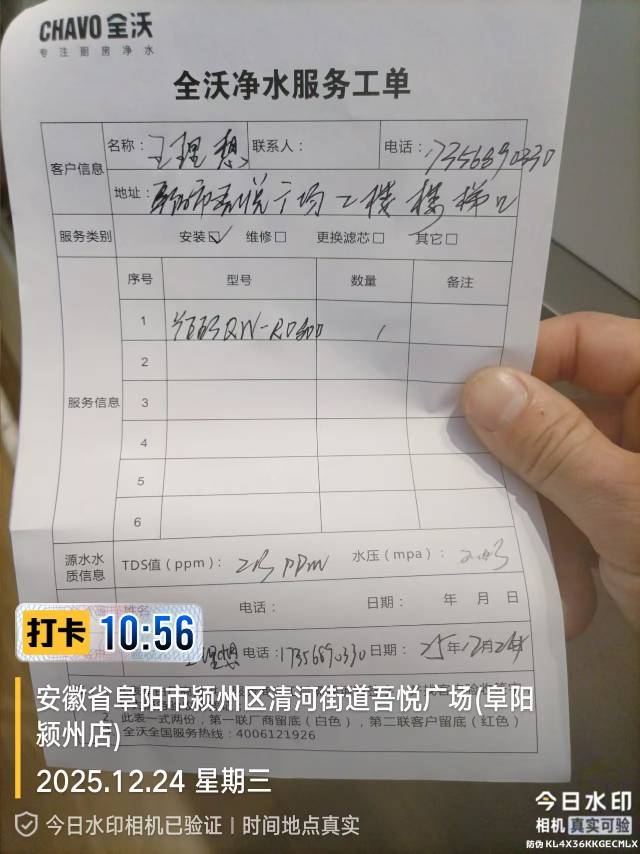 CHAVO 全沃
专注厨房净水
全沃净水服务工单
客户信息 名称：王理想 联系人： 电话：17356890330
地址：阜阳市吾悦广场二楼楼梯口
服务类别 安装☑ 维修□ 更换滤芯□ 其它□
服务信息 序号 型号 数量 备注
1 QW-RO800 1
2
3
4
5
6
源水水质信息 TDS值（ppm）： ppm 水压（mpa）：
姓名 电话： 日期： 年 月 日
王理想 电话：17356890330 日期：25年12月24日
2、此表一式两份，第一联厂商留底（白色），第二联客户留底（红色）
全沃全国服务热线：4006121926
打卡 10:56
安徽省阜阳市颍州区清河街道吾悦广场(阜阳
颍州店)
2025.12.24 星期三
今日水印相机已验证 | 时间地点真实
今日水印
相机 真实可验
防伪 KL4X36KKGECMLX